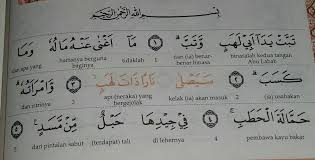 بِسْمِ اللَّهِ الرَّحْمَٰنِ الرَّحِيمِ
تَبَّتْ يَدَا أَبِي لَهَبٍ وَتَبَّ ١ مَا أَغْنَىٰ عَنْهُ مَالُهُ وَمَا
dan apa yang hartanya berguna tidaklah 1 dan (ia) benar- binasalah kedua tangan
baginya benar binasa Abu Lahab
كَسَبَ ٢ سَيَصْلَىٰ نَارًا ذَاتَ لَهَبٍ ٣ وَامْرَأَتُهُ
dan istrinya 3 api (neraka) yang kelak (ia) akan masuk 2
bergejolak
حَمَّالَةَ الْحَطَبِ ٤ فِي جِيدِهَا حَبْلٌ مِّن مَّسَدٍ ٥
5 dari pintalan sabut (terdapat) tali di lehernya 4 pembawa kayu bakar